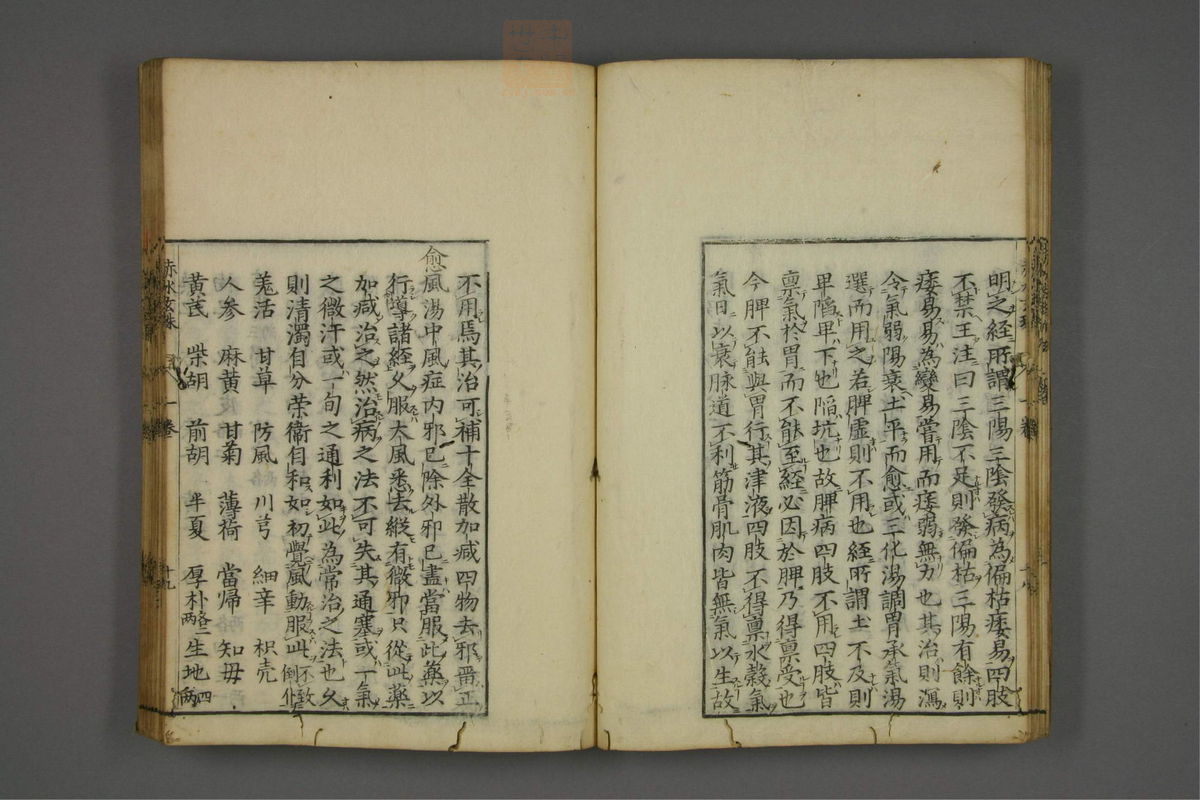 明之經所謂三陽三陰發病為偏枯痿易四肢
不禁王注曰三陰不足則發偏枯三陽有餘則
痿易易為變易常用而痿弱無力也其治則瀉
令氣弱陽衰土平而愈或三化湯調胃承氣湯
選而用之若脾虛則不用也經所謂土不及則
卑隘卑下也隘坑也故脾病四肢不用四肢皆
稟氣於胃而不能至經必因於脾乃得稟受也
今脾不能與胃行其津液四肢不得稟水榖氣
氣日以衰脉道不利筋骨肌肉皆無氣以生故
不用焉其治可補十全散加减四物去邪畱正
愈風湯中風症内邪已除外邪已盡當服此藥以
行導諸經久服大風悉去縱有微邪只從此藥
加减治之然治病之法不可失其通塞或一氣
之微汗或一旬之通利如此為常治之法也久
則清濁自分榮衞自和如初覺風動服此不致倒仆
羗活 甘草 防風 川芎 細辛 枳壳
人参 麻黄 甘菊 薄荷 當帰 知母
黄芪 柴胡 前胡 半夏 厚朴各二两 生地四两
赤水玄珠 一卷 十九